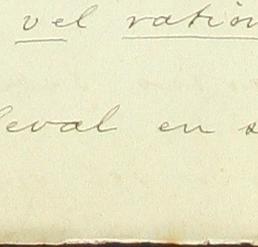 vel ration
leval en s